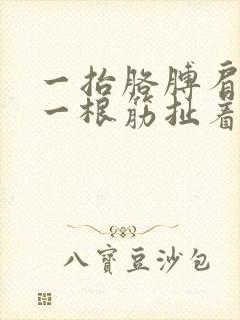 一抬胳膊肩
一根筋扯着
八寶豆沙包